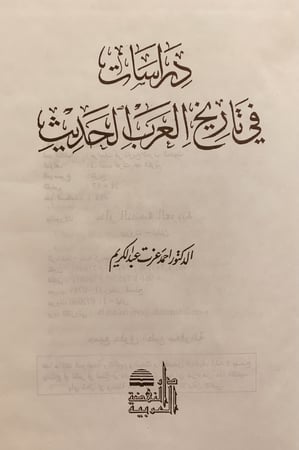 دراسات
في تاريخ العرب الحديث
الدكتور احمد عزت عبد الكريم
دار
النهضة
العربية